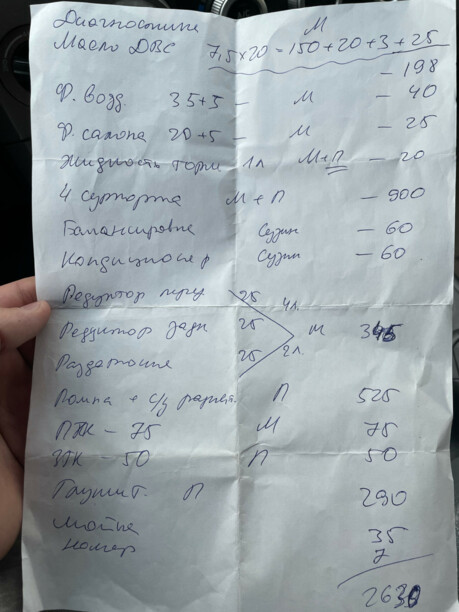 Диагностика М
Масло ДВС 7,5 x 20 = 150 + 20 + 3 + 25
- 198
Ф. возд. 35+5 - М - 40
Ф. салона 20+5 - М - 25
Жидкость торм 1л М+П - 20
4 суппорта М + П - 900
Балансировка Сузин - 60
Кондиционер Сузин - 60
Редуктор перед 25 4л.
Редуктор задн 25 М 345
Раздаточные 25 2л.
Помпа + с/у П 525
ППК - 75 М 75
ЗПК - 50 П 50
П 290
Мойка 35
номер 7
2630